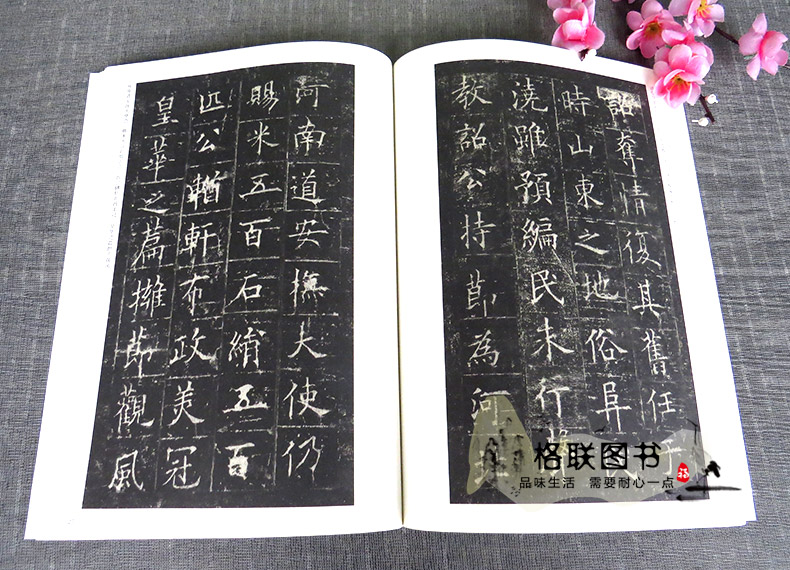 詔奪情復其舊任于
時山東之地俗阜民
澆雖預編民未行
教詔公持節為河
河南道安撫大使仍
賜米五百石絹五百
匹公輶軒布政美冠
皇華之篇擁節觀風
格联图书
福
品味生活 需要耐心一点